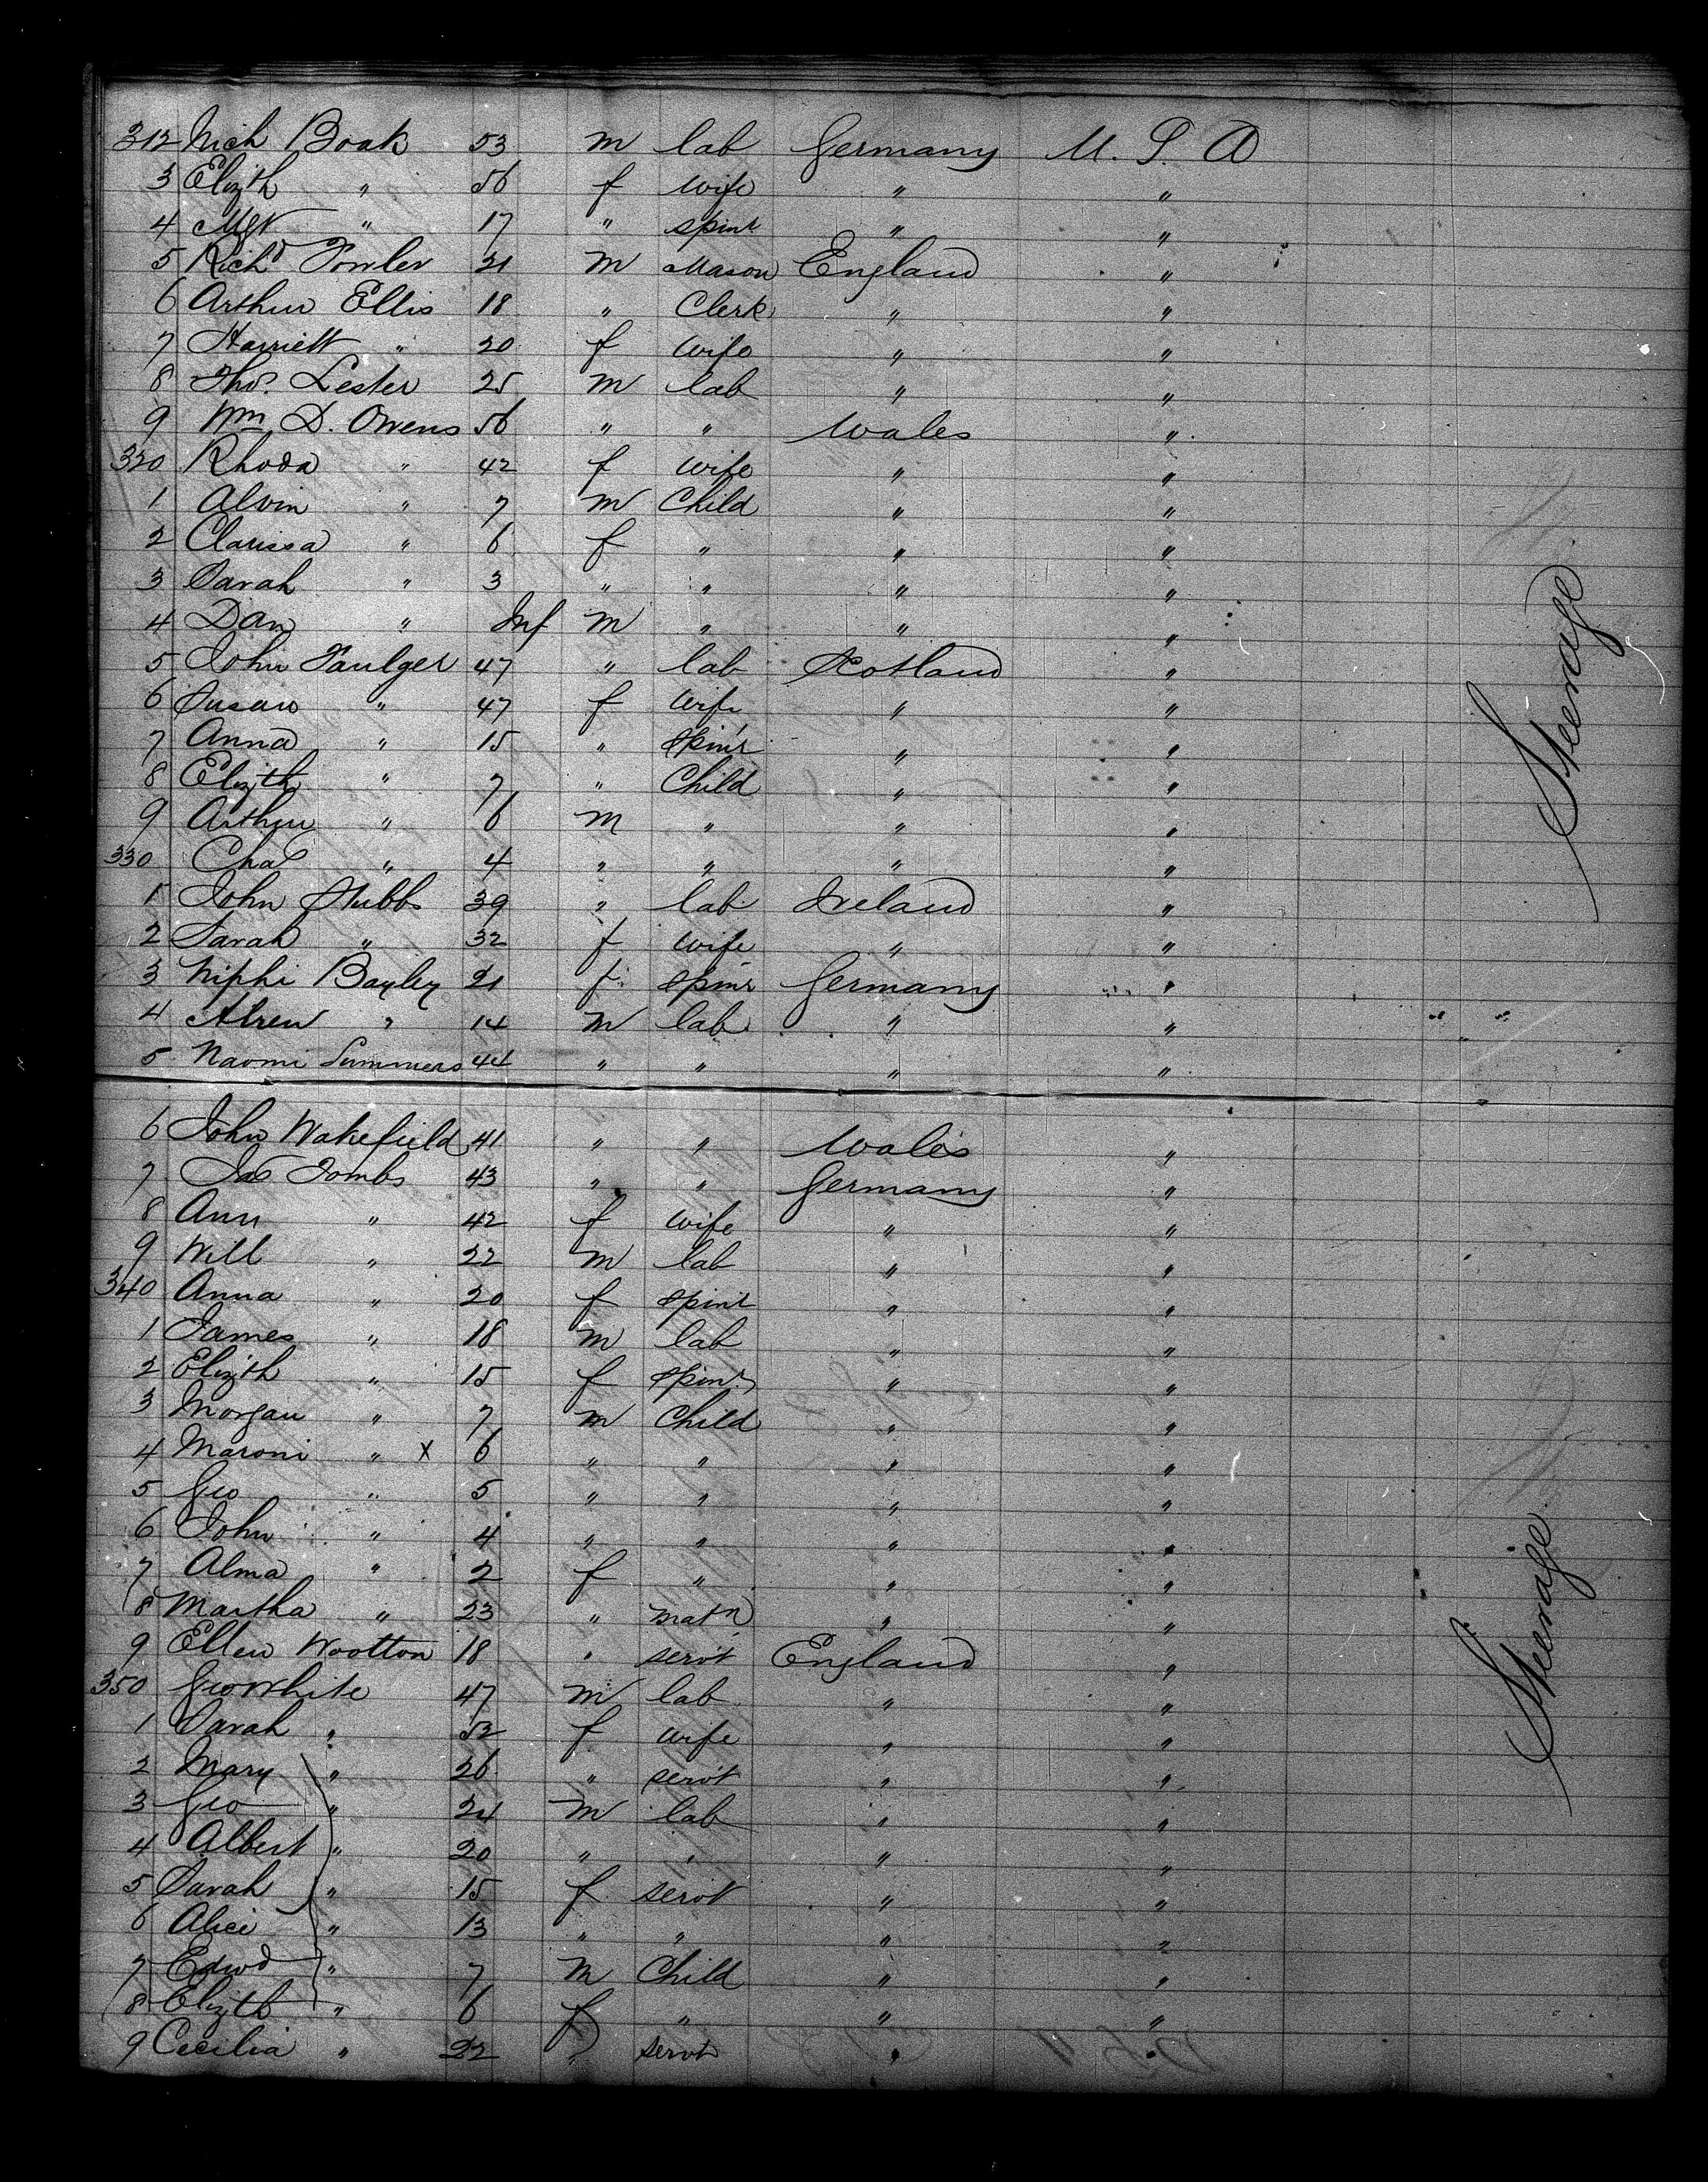 312 Nich Boak 53 m lab Germany U. S. A
3 Elizth " 56 f wife " "
4 Mgt " 17 " spinr " "
5 Richd Fowler 21 m Mason England "
6 Arthur Ellis 18 " Clerk " "
7 Harriett " 20 f wife " "
8 Thos. Lester 25 m lab " "
9 Wm D. Owens 56 " " Wales "
320 Rhoda " 42 f wife " "
1 Alvin " 7 m Child " "
2 Clarissa " 6 f " " "
3 Sarah " 3 " " " "
4 Dan " Inf m " " "
5 John Faulger 47 " lab Scotland "
6 Susan " 47 f wife " "
7 Anna " 15 " spinr " "
8 Elizth " 7 " Child " "
9 Arthur " 6 m " " "
330 Chas " 4 " " " "
1 John Stubbs 39 " lab Ireland "
2 Sarah " 32 f wife " "
3 Niphi Bayley 21 f spinr Germany "
4 " 14 m lab " "
5 Naomi Summers 44 " " " "
6 John Wakefield 41 " " Wales "
7 Jas Tombs 43 " " Germany "
8 Ann " 42 f wife " "
9 Will " 22 m lab " "
340 Anna " 20 f spinr " "
1 James " 18 m lab " "
2 Elizth " 15 f spinr " "
3 Morgan " 7 m Child " "
4 Maroni " x 6 " " " "
5 Geo " 5 " " " "
6 John " 4 " " " "
7 Alma " 2 f " " "
8 Martha " 23 " matn " "
9 Ellen Wootton 18 " servt England "
350 Geo White 47 m lab " "
1 Sarah " 52 f wife " "
2 Mary " 26 " servt " "
3 Geo " 24 m lab " "
4 Albert " 20 " " " "
5 Sarah " 15 f servt " "
6 Alice " 13 " " " "
7 Edwd " 7 m Child " "
8 Elizth " 6 f " " "
9 Cecilia " 22 " servt " "
Steerage
Steerage